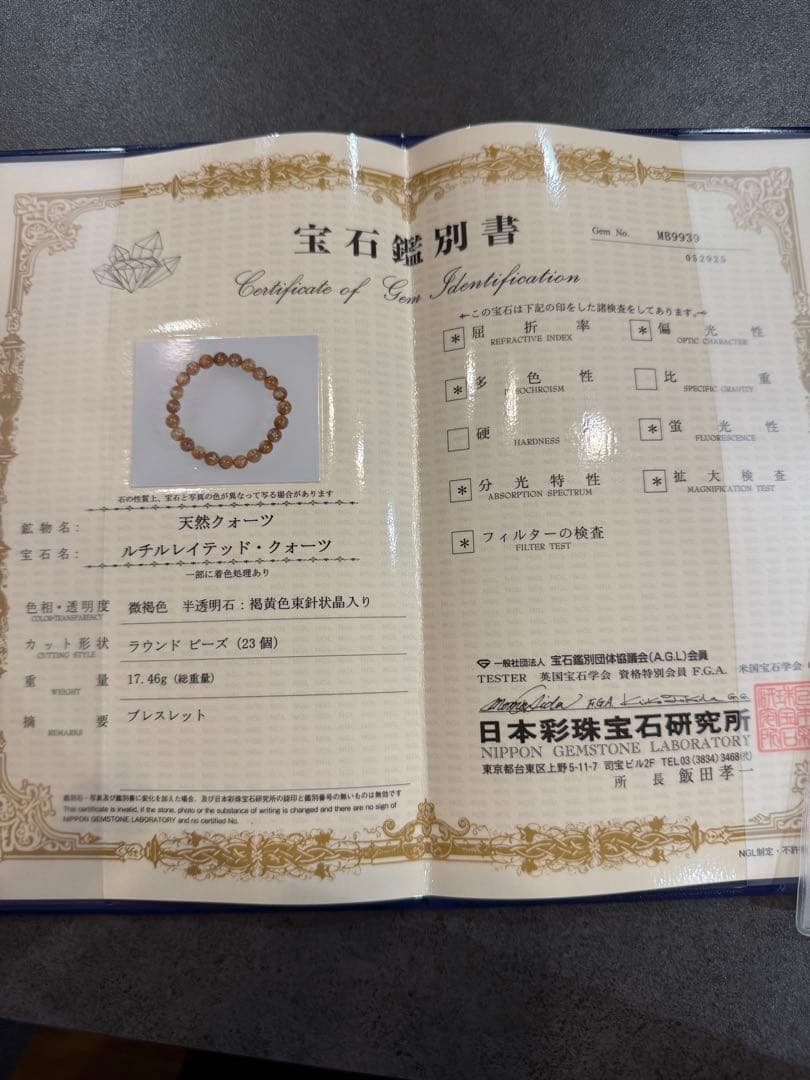 宝石鑑別書
Certificate of Gem Identification
Gem No. MB9939
052925
この宝石は下記の印をした諸検査をしてあります。
* 屈折率
REFRACTIVE INDEX
* 偏光性
OPTIC CHARACTER
* 多色性
比重
SPECIFIC GRAVITY
硬
HARDNESS
* 蛍光性
FLUORESCENCE
* 分光特性
ABSORPTION SPECTRUM
* 拡大検査
MAGNIFICATION TEST
* フィルターの検査
FILTER TEST
石の性質上、宝石と写真の色が異なって写る場合があります
鉱物名: 天然クォーツ
宝石名: ルチルレイテッド・クォーツ
一部に着色処理あり
色相・透明度 微褐色 半透明石:褐黄色束針状晶入り
COLOR•TRANSPARENCY
カット形状 ラウンド ビーズ (23個)
CUTTING STYLE
重量 17.46g (総重量)
WEIGHT
摘要 ブレスレット
REMARKS
鑑別石・写真及び鑑別書に変化を加えた場合、及び日本彩珠宝石研究所の認印と鑑別番号の無いものは無効です
This certificate is invalid, if the stone, photo or the substance of writing is changed and there are no sign of
NIPPON GEMSTONE LABORATORY and no certified No.
一般社団法人 宝石鑑別団体協議会(A.G.L)会員
TESTER 英国宝石学会 資格特別会員 F.G.A. 米国宝石学会
F.G.A. G.G.
日本彩珠宝石研究所
NIPPON GEMSTONE LABORATORY
東京都台東区上野5-11-7 司宝ビル2F TEL03(3834)3468(代)
所長 飯田孝一
NGL制定・不許